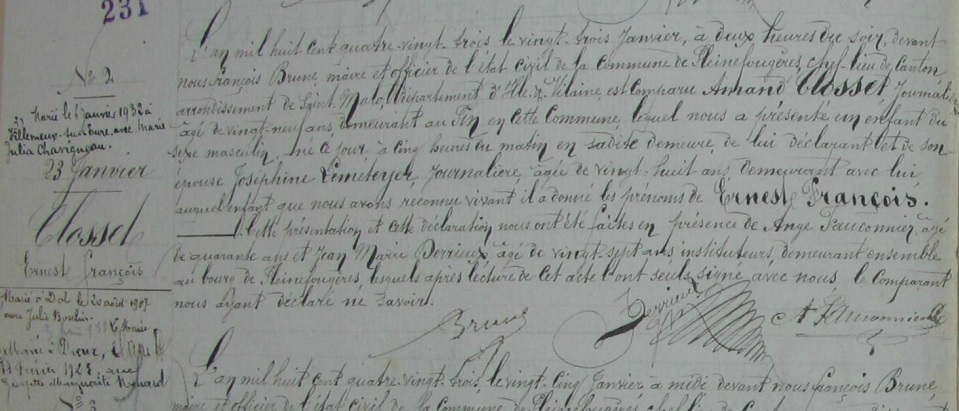 231
No 2
Marié le 6 janvier 1933 à
Villemeux-sur-Eure, avec Marie
Julia Chavigneau.
23 Janvier
Closset
Ernest François
Marié à Dol le 20 août 1907
avec Julie Boulin.
Marié à Dreux,
février 1928, avec
Marguerite
No 3
L'an mil huit cent quatre-vingt-trois le vingt-trois Janvier, à deux heures du soir, devant
nous François Brune maire et officier de l'état civil de la Commune de Pleinefougères, chef-lieu de Canton
arrondissement de Saint Malo, département d'Ille & Vilaine, est comparu Amand Closset, journalier
âgé de vingt-neuf ans, demeurant au Pin en cette Commune, lequel nous a présenté un enfant du
sexe masculin, né ce jour, à cinq heures du matin en sadite demeure, de lui déclarant et de son
épouse Joséphine Leméteyer, Journalière, âgée de vingt-huit ans, demeurant avec lui
auquel enfant que nous avons reconnu vivant il a donné les prénoms de Ernest François.
Cette présentation et cette déclaration nous ont été faites en présence de Ange Fauconnier, âgé
de quarante ans et Jean Marie Derrieux, âgé de vingt-sept ans instituteurs, demeurant ensemble
au bourg de Pleinefougères, lesquels après lecture de cet acte l'ont seuls signé avec nous, le comparant
nous ayant déclaré ne savoir.
Brune
Derrieux
L'an mil huit cent quatre-vingt-trois le vingt-cinq Janvier à midi devant nous François Brune
maire et officier de l'état civil de la Commune de Pleinefougères chef-lieu de Canton